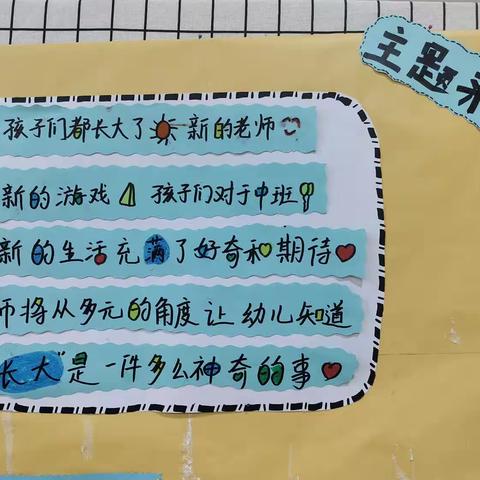 主题
孩子们都长大了新的老师
新的游戏 孩子们对于中班
新的生活充满了好奇和期待
师将从多元的角度让幼儿知道
长大"是一件多么神奇的事